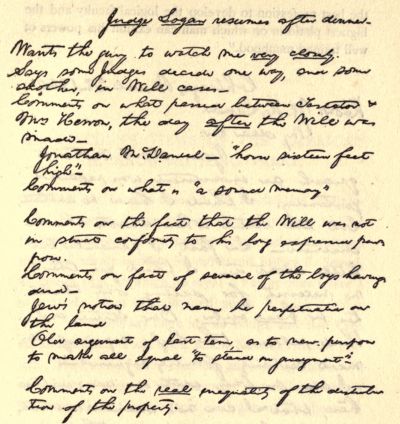 Judge Logan resumes after dinner.
Wants the jury to watch me very closely.
Says some Judges decide one way, and some
another, in Will cases—
Comments on what passed between Testator &
Mrs Herron, the day after the Will was
made—
Jonathan McDaniel— "horn sixteen feet
high"—
Comments on what is "a sound memory"
Comments on the fact that the Will was not
in strict conformity to his long expressed pur
pose.
Comments on fact of several of the boys having
died—
Jew's notion that name be perpetuated on
the land
Old argument of last term, as to new purpose
to make all equal "to stand in judgment".
Comments on the real inequality of the distribu
tion of the property.